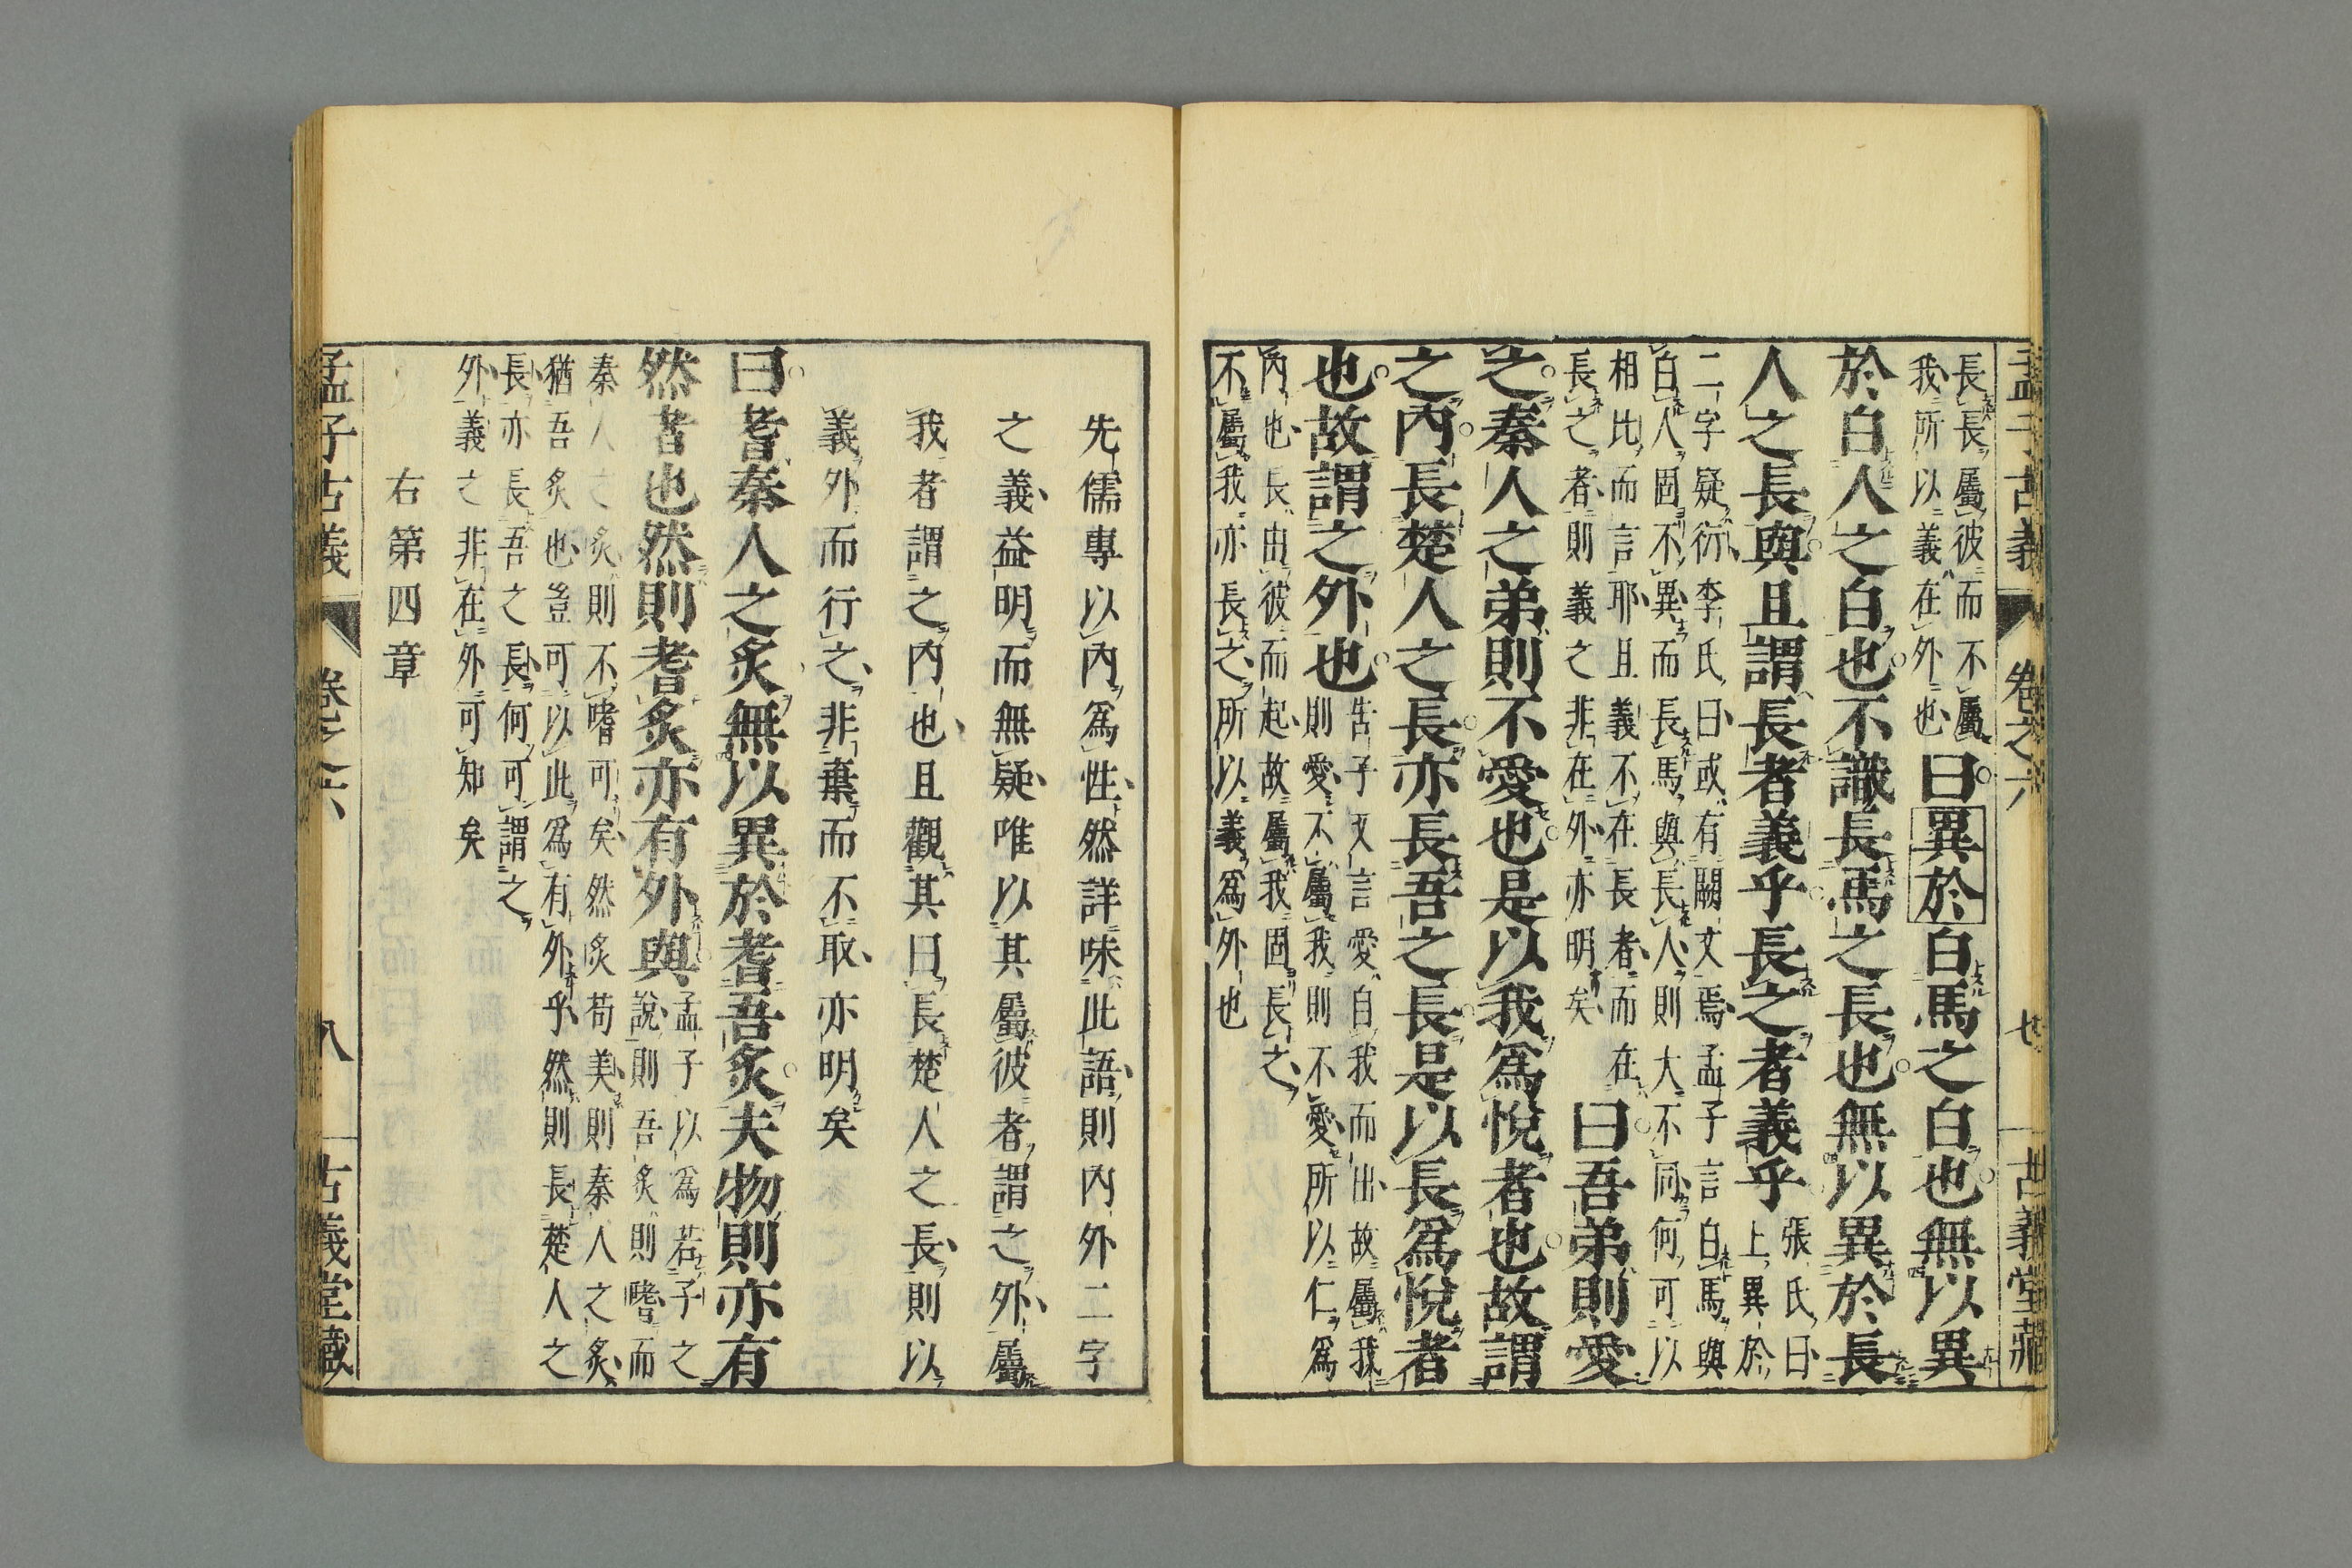 孟子古義 卷之六 七 古義堂藏
長長屬彼而不屬
我所以義在外也
曰異於白馬之白也無以異
於白人之白也不識長馬之長也無以異於長
人之長與且謂長者義乎長之者義乎
張氏曰
上異於
二字疑衍李氏曰或有闕文焉孟子言白馬與
白人固不異而長馬與長人則大不同何可以
相比而言耶且義不在長者而在
長之者則義之非在外亦明矣
曰吾弟則愛
之秦人之弟則不愛也是以我爲悅者也故謂
之內長楚人之長亦長吾之長是以長爲悅者
也故謂之外也
告子又言愛自我而出故屬我
則愛不屬我則不愛所以仁爲
內也長由彼而起故屬我固長之
不屬我亦長之所以義爲外也
先儒專以內爲性然詳味此語則內外二字
之義益明而無疑唯以其屬彼者謂之外屬
我者謂之內也且觀其曰長楚人之長則以
義外而行之非棄而不取亦明矣
曰耆秦人之炙無以異於耆吾炙夫物則亦有
然者也然則耆炙亦有外與
孟子以爲若子之
說則吾炙則嗜而
秦人之炙則不嗜可矣然炙苟美則秦人之炙
猶吾炙也豈可以此爲有外乎然則長楚人之
長亦長吾之長何可謂之
外義之非在外可知矣
右第四章
孟子古義 卷之六 八 古義堂藏